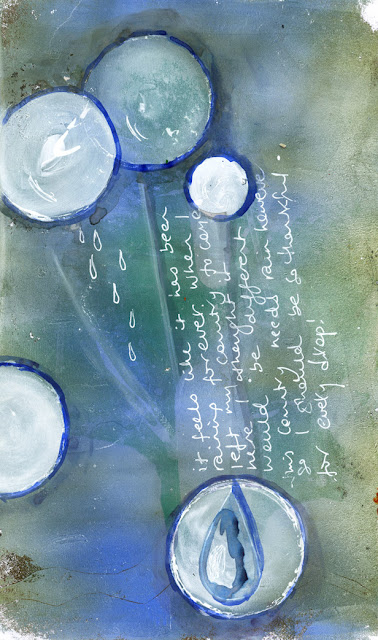 it feels like it has been
raining forever when I
left my country to come
here I thought it
would be different
this country needs rain however
so I should be so thankful.
for every drop!